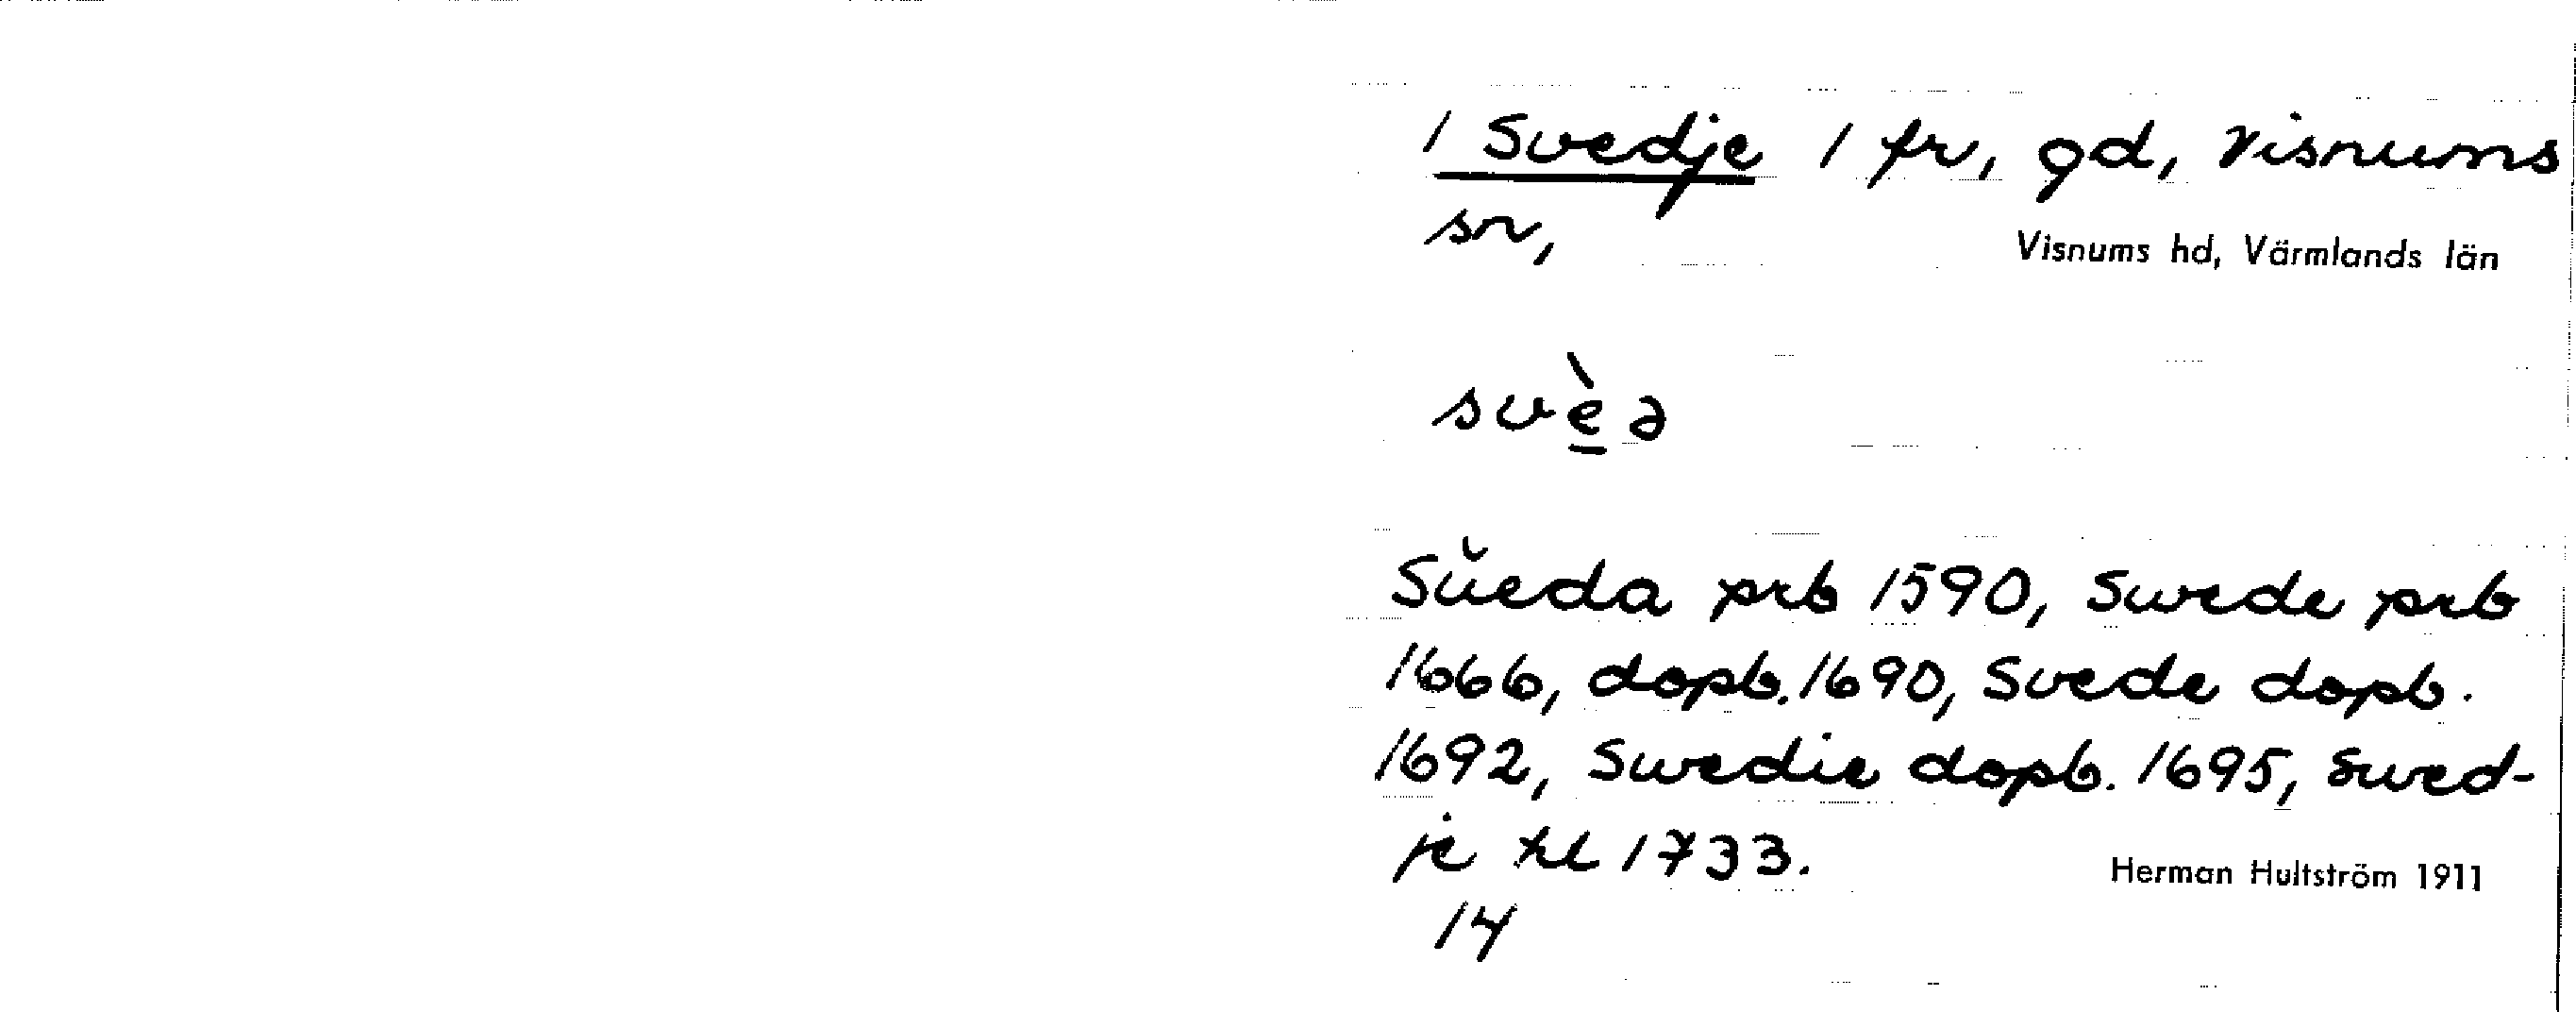 1 Svedje 1 fr, gd, Visnums
sn,
Visnums hd, Värmlands län
svè̱ə
Sŭeda prb 1590, Swede prb
1666, dopb. 1690, Svede dopb.
1692, Swedie dopb. 1695, Swed-
je kl 1733.
Herman Hultström 1911
14